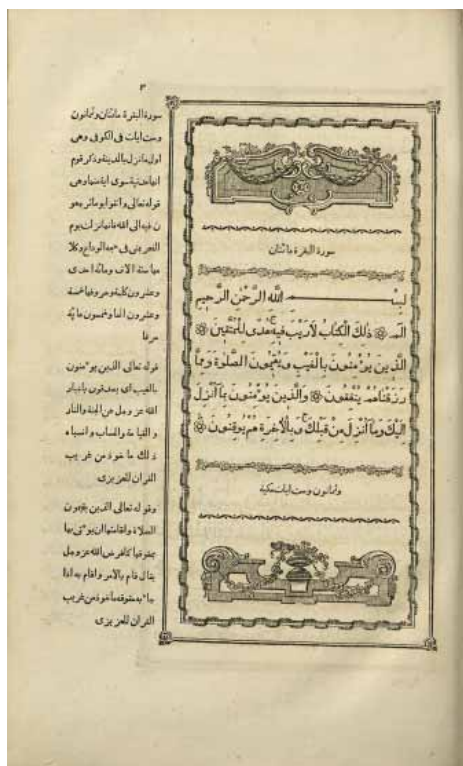 ٣
سورة البقرة مائتان
بسم الله الرحمن الرحيم
الم ذلك الكتاب لا ريب فيه هدى للمتقين
الذين يؤمنون بالغيب ويقيمون الصلوة ومما
رزقناهم ينفقون والذين يؤمنون بما أنزل
اليك وما أنزل من قبلك وبالآخرة هم يوقنون
وثمانون وست ايات مكية
سورة البقرة مائتان وثمانون
وست ايات في الكوفي وهي
اول ما نزل بالمدينة وذكر قوم
انها مدنية سوى اية منها وهي
قوله تعالى واتقوا يوما ترجعو
ن فيه الى الله فانها نزلت يوم
النحر بمنى في حجة الوداع وكلا
مها ستة الاف ومائة احدى
وعشرون كلمة وحروفها خمسة
وعشرون الفا وخمسون مائة
حرفا
قوله تعالى الذين يومنون
بالغيب اى يصدقون باخبار
الله عز وجل عن الجنة والنار
و القيامة والحساب واشباه
ذلك ماخوذ من غريب
القران للعزيزى
وقوله تعالى الذين يقيمون
الصلاة واقامتها ان يوتى بها
بحقوقها كما فرض الله عز وجل
يقال قام بالامر واقام به اذا
جاء به بحقوقه ماخوذ من غريب
القران للعزيزى